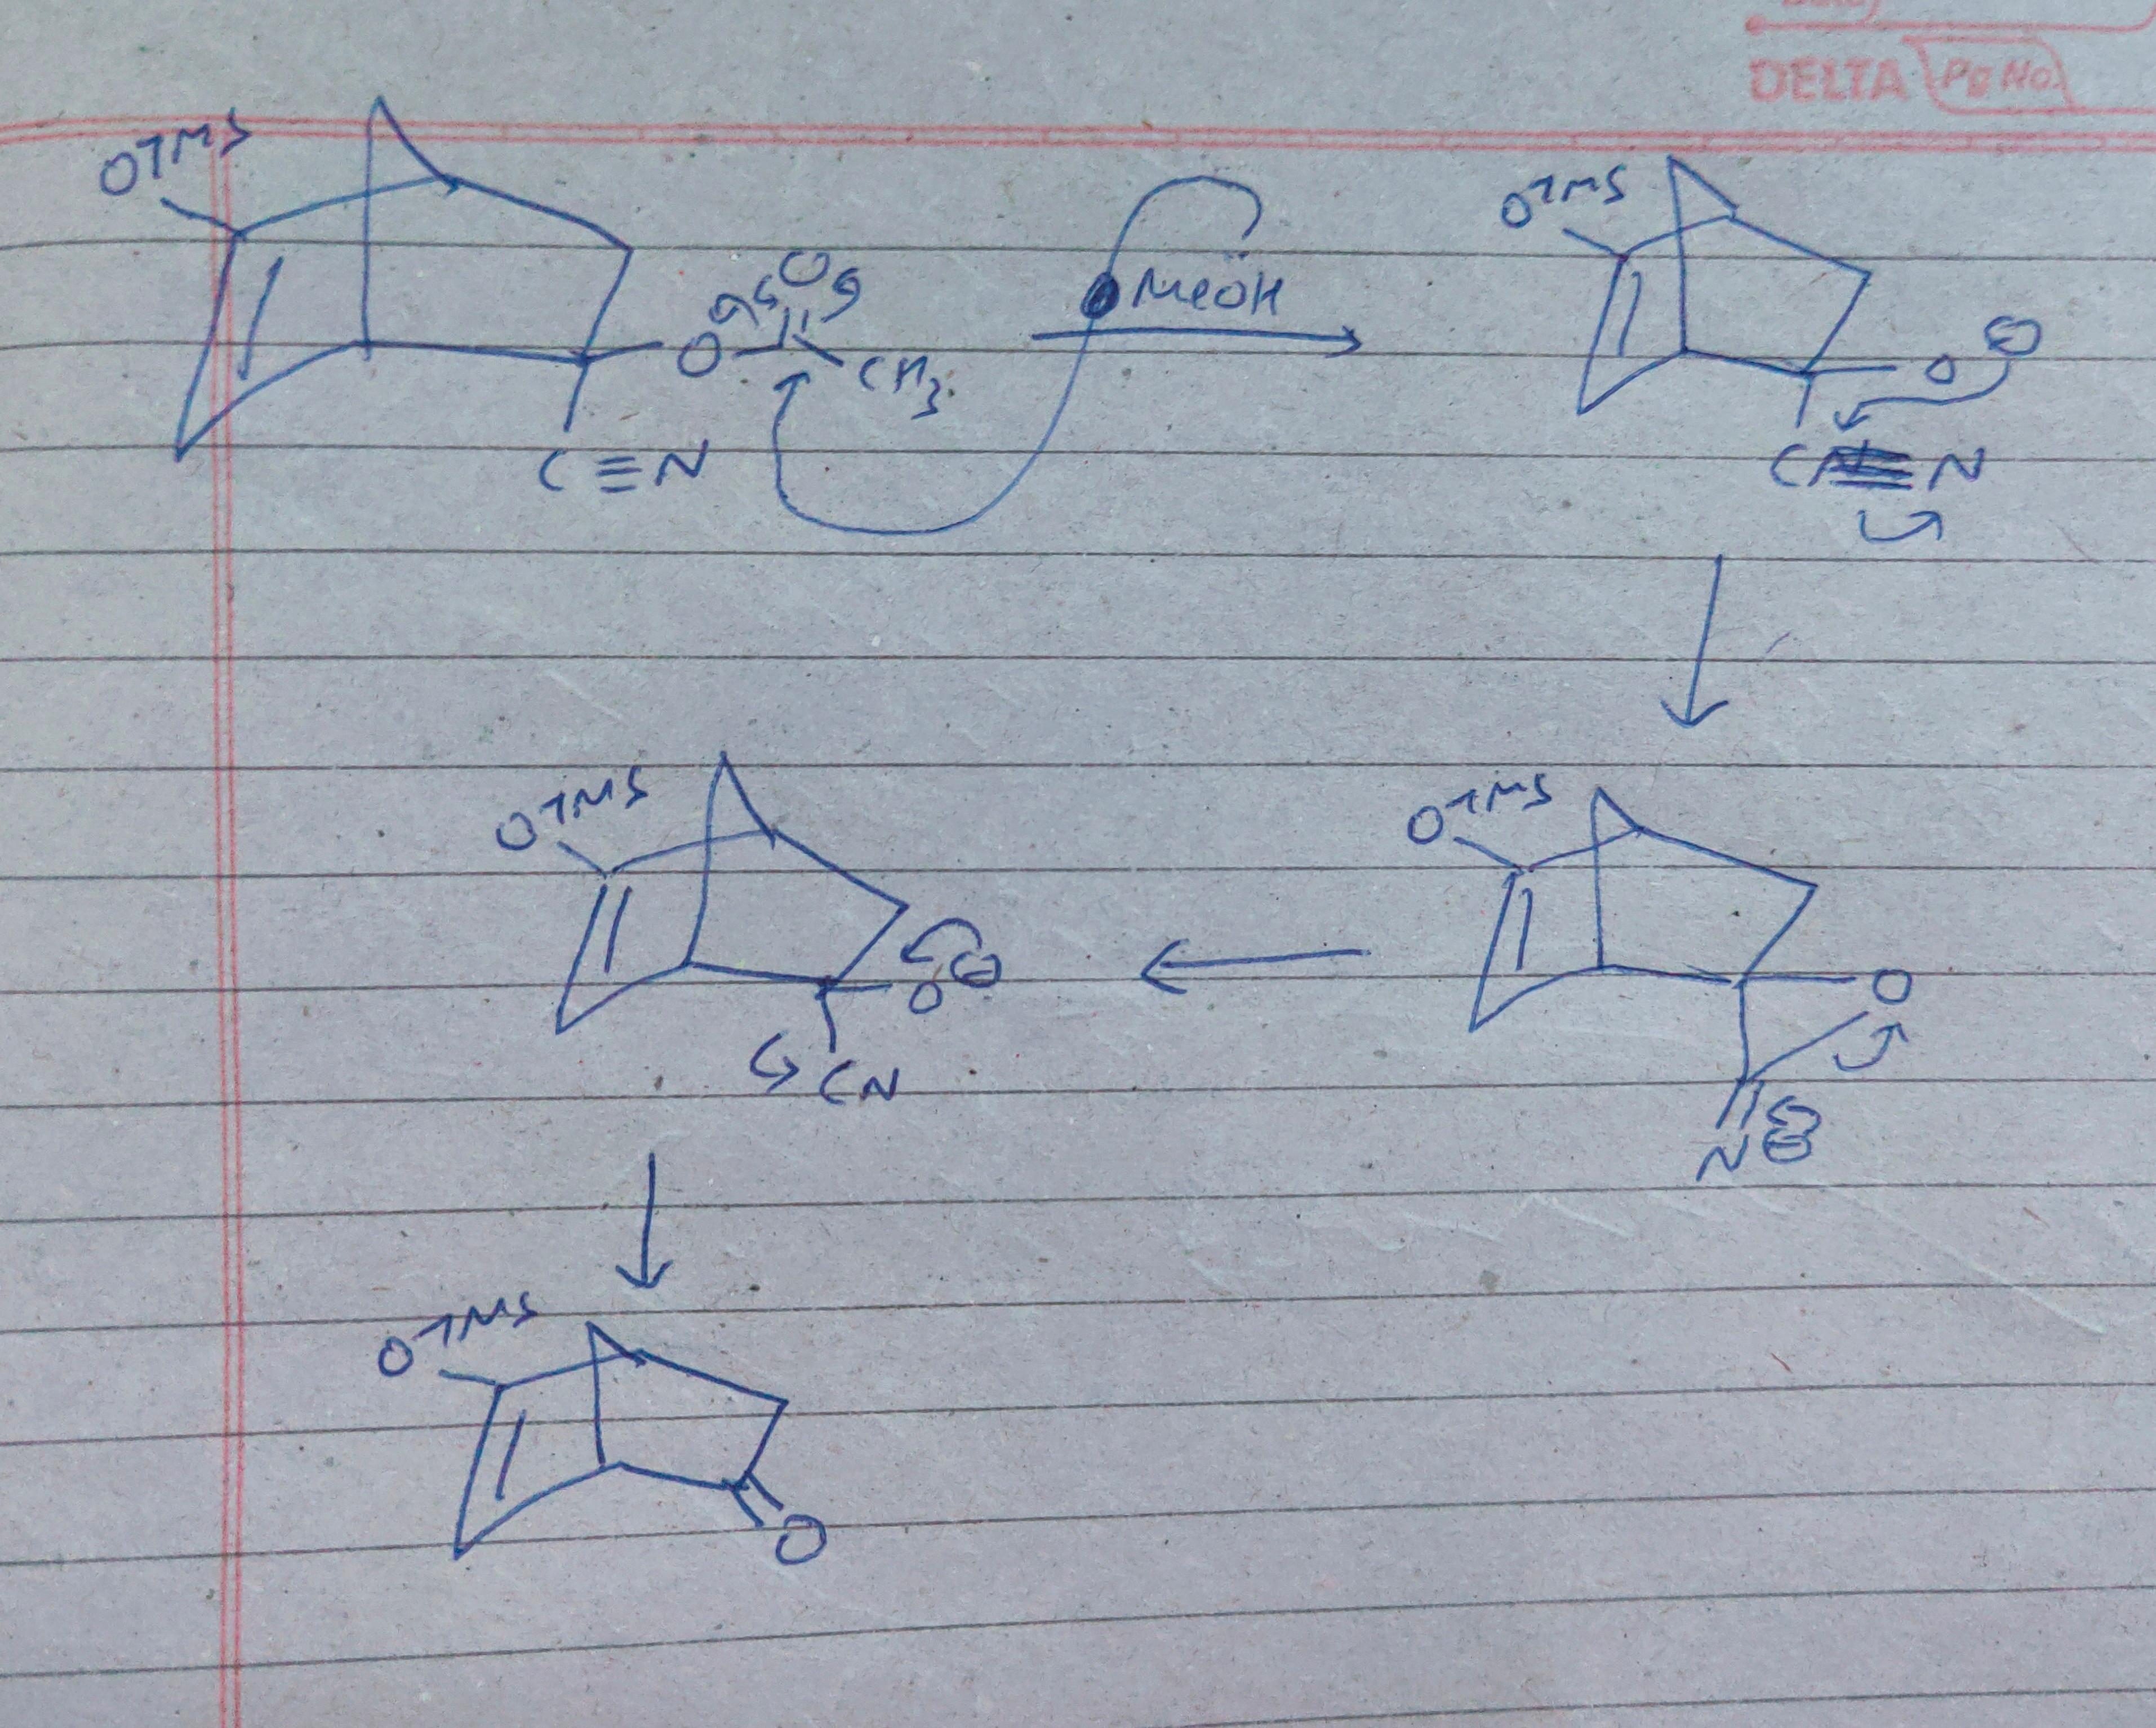 DELTA Pg No.
OTMS
O
O
CH3
C≡N
MeOH
OTMS
O ⊖
C≡N
OTMS
O
N ⊖
OTMS
O ⊖
CN
OTMS
O